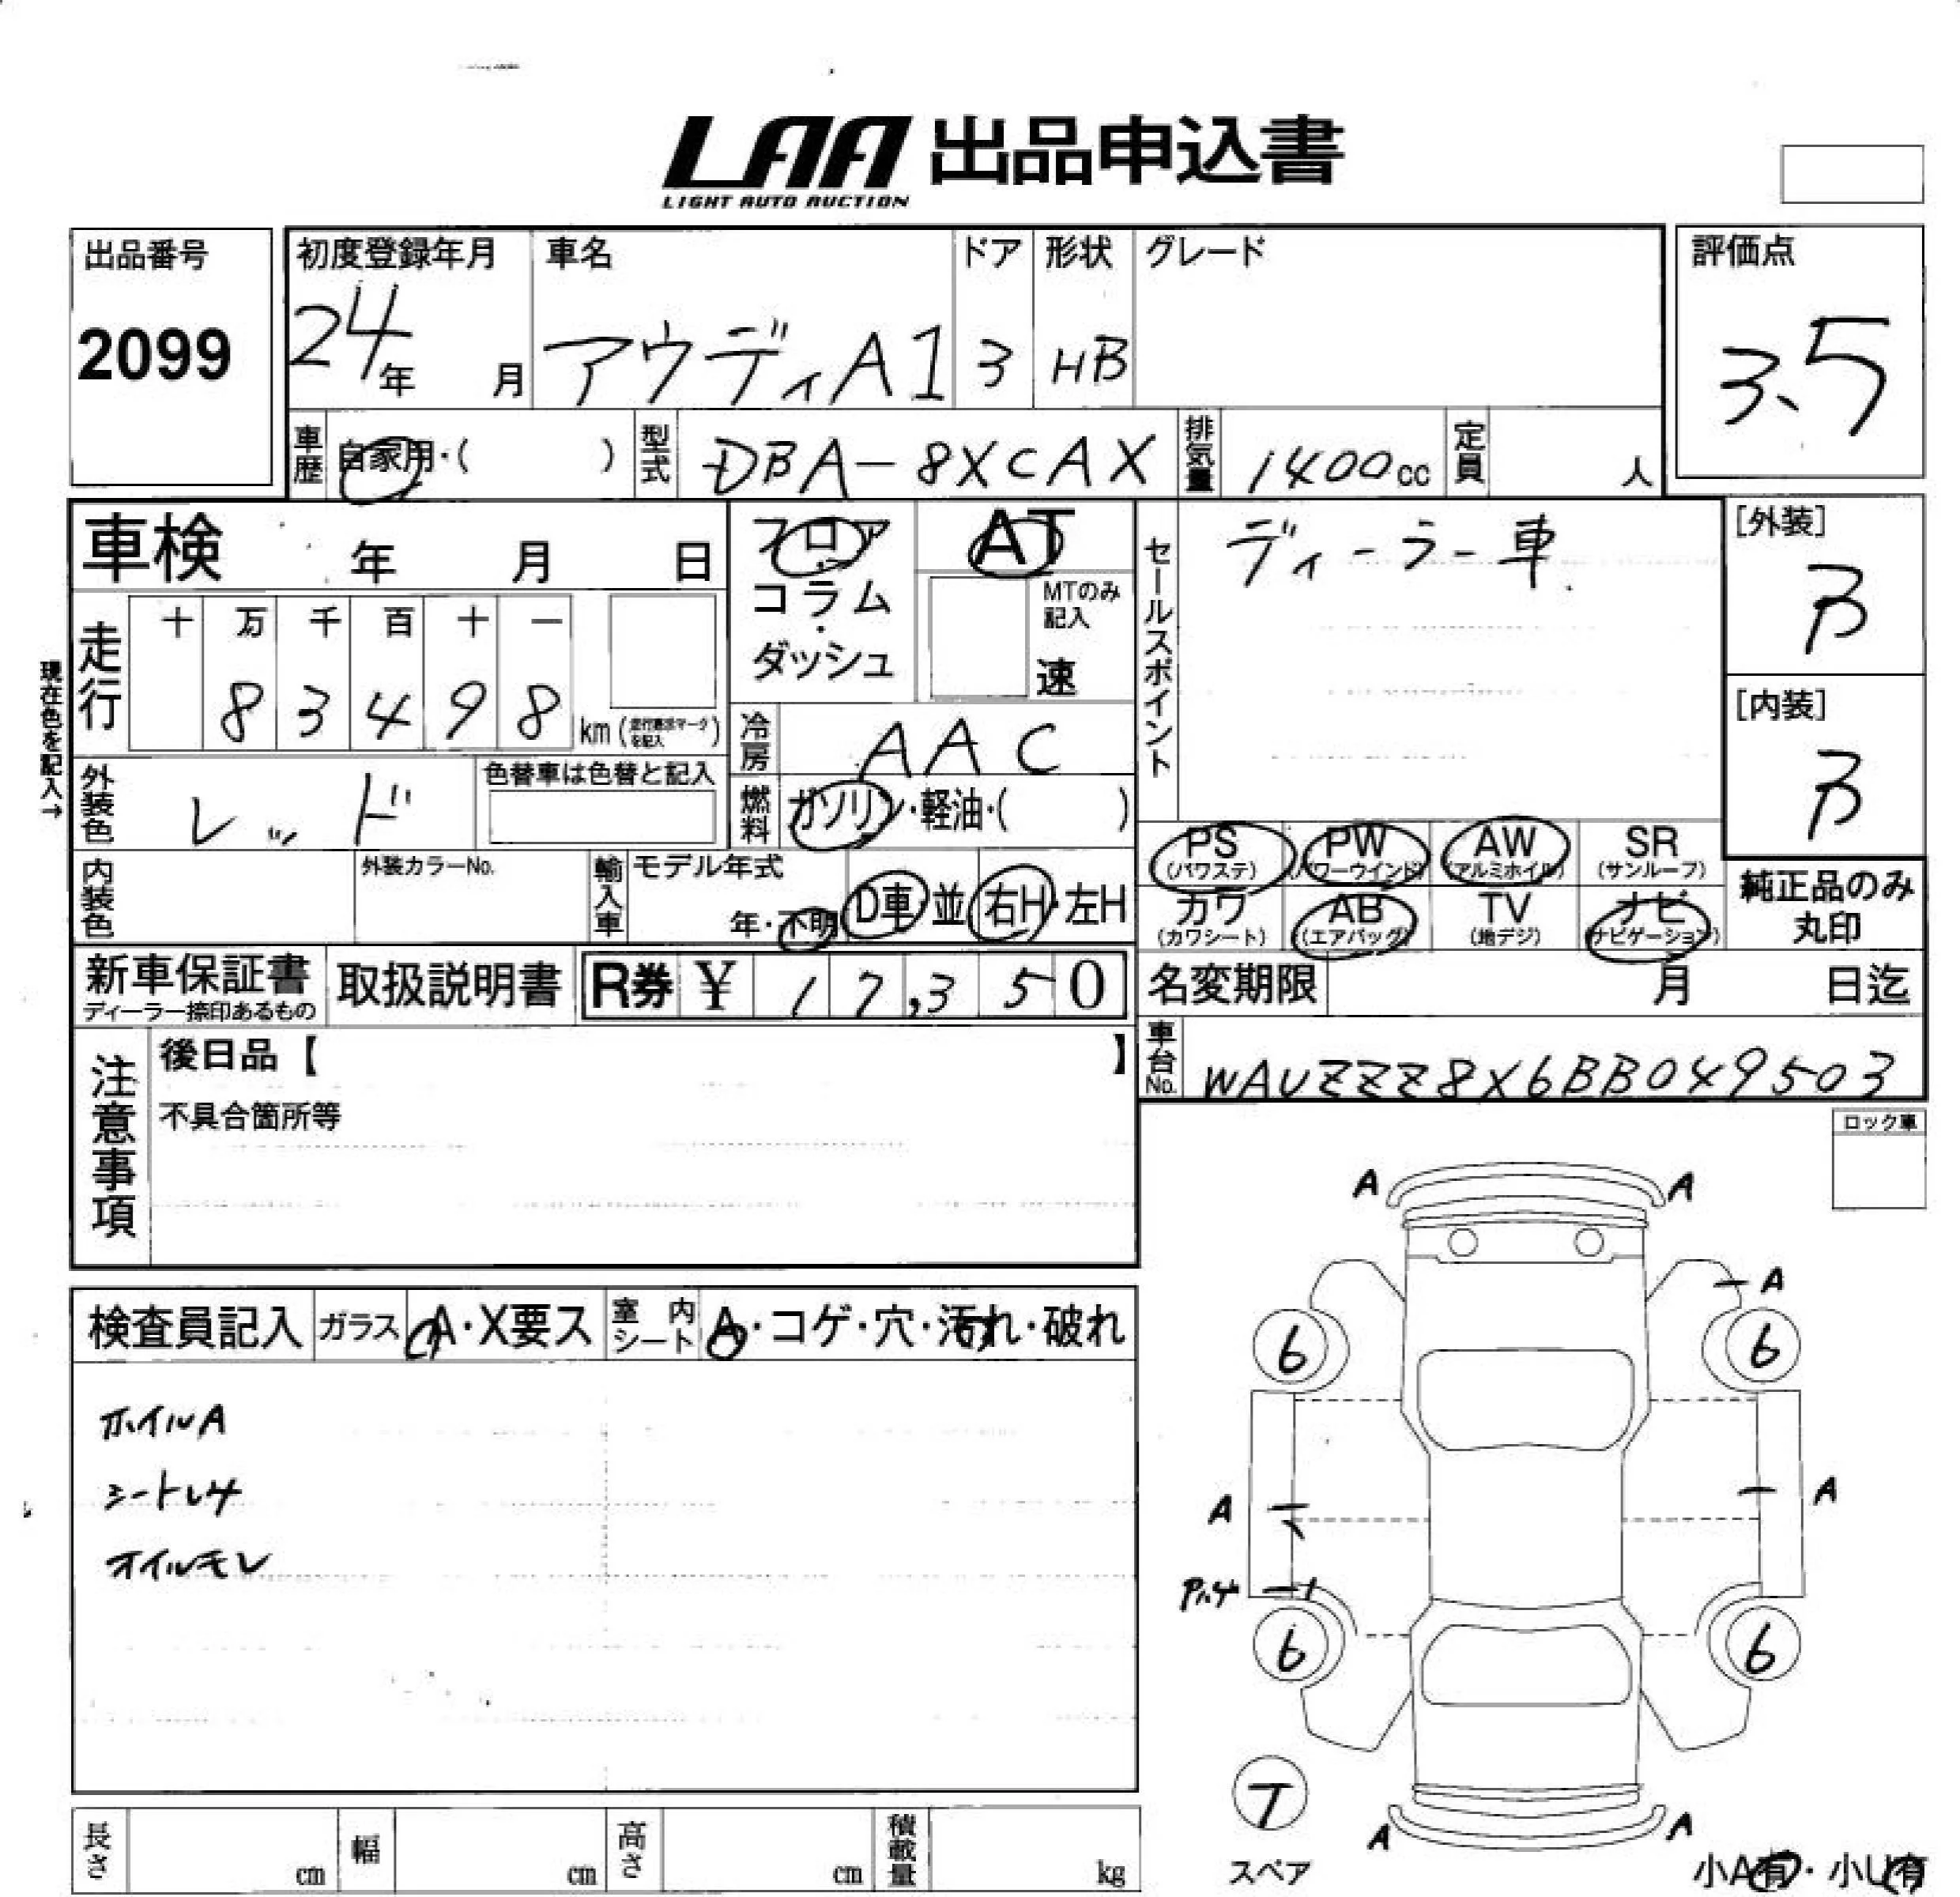 LAA 出品申込書
LIGHT AUTO AUCTION
出品番号
2099
初度登録年月
24年 月
車名
アウディA1
ドア
3
形状
HB
グレード
評価点
3.5
車歴 自家用・( )
型式 DBA-8XCAX
排気量 1400cc
定員 人
車検 年 月 日
フロア
コラム
・
ダッシュ
AT
MTのみ
記入
速
セールスポイント
ディーラー車
[外装]
B
[内装]
B
現在色を記入→
走行
十 万 千 百 十 一
8 3 4 9 8 km
冷房 AAC
外装色 レッド
色替車は色替と記入
燃料 ガソリン・軽油・( )
PS
(パワステ)
PW
(パワーウインド)
AW
(アルミホイル)
SR
(サンルーフ)
カワ
(カワシート)
AB
(エアバック)
TV
(地デジ)
ナビ
(ナビゲーション)
純正品のみ
丸印
内装色
外装カラーNo.
輸入車
モデル年式
年・不明
D車・並
右H・左H
新車保証書
ディーラー捺印あるもの
取扱説明書
R券 ¥ 17,350
名変期限 月 日迄
車台No. WAUZZZ8X6BB049503
注意事項
後日品【 】
不具合箇所等
ロック車
検査員記入
ガラス A・X要ス
室内シート A・コゲ・穴・汚れ・破れ
ホイルA
シートレサ
オイルモレ
A A
A
6 6
A A
6 6
T
スペア
A A
小A有・小U有
長さ cm
幅 cm
高さ cm
積載量 kg